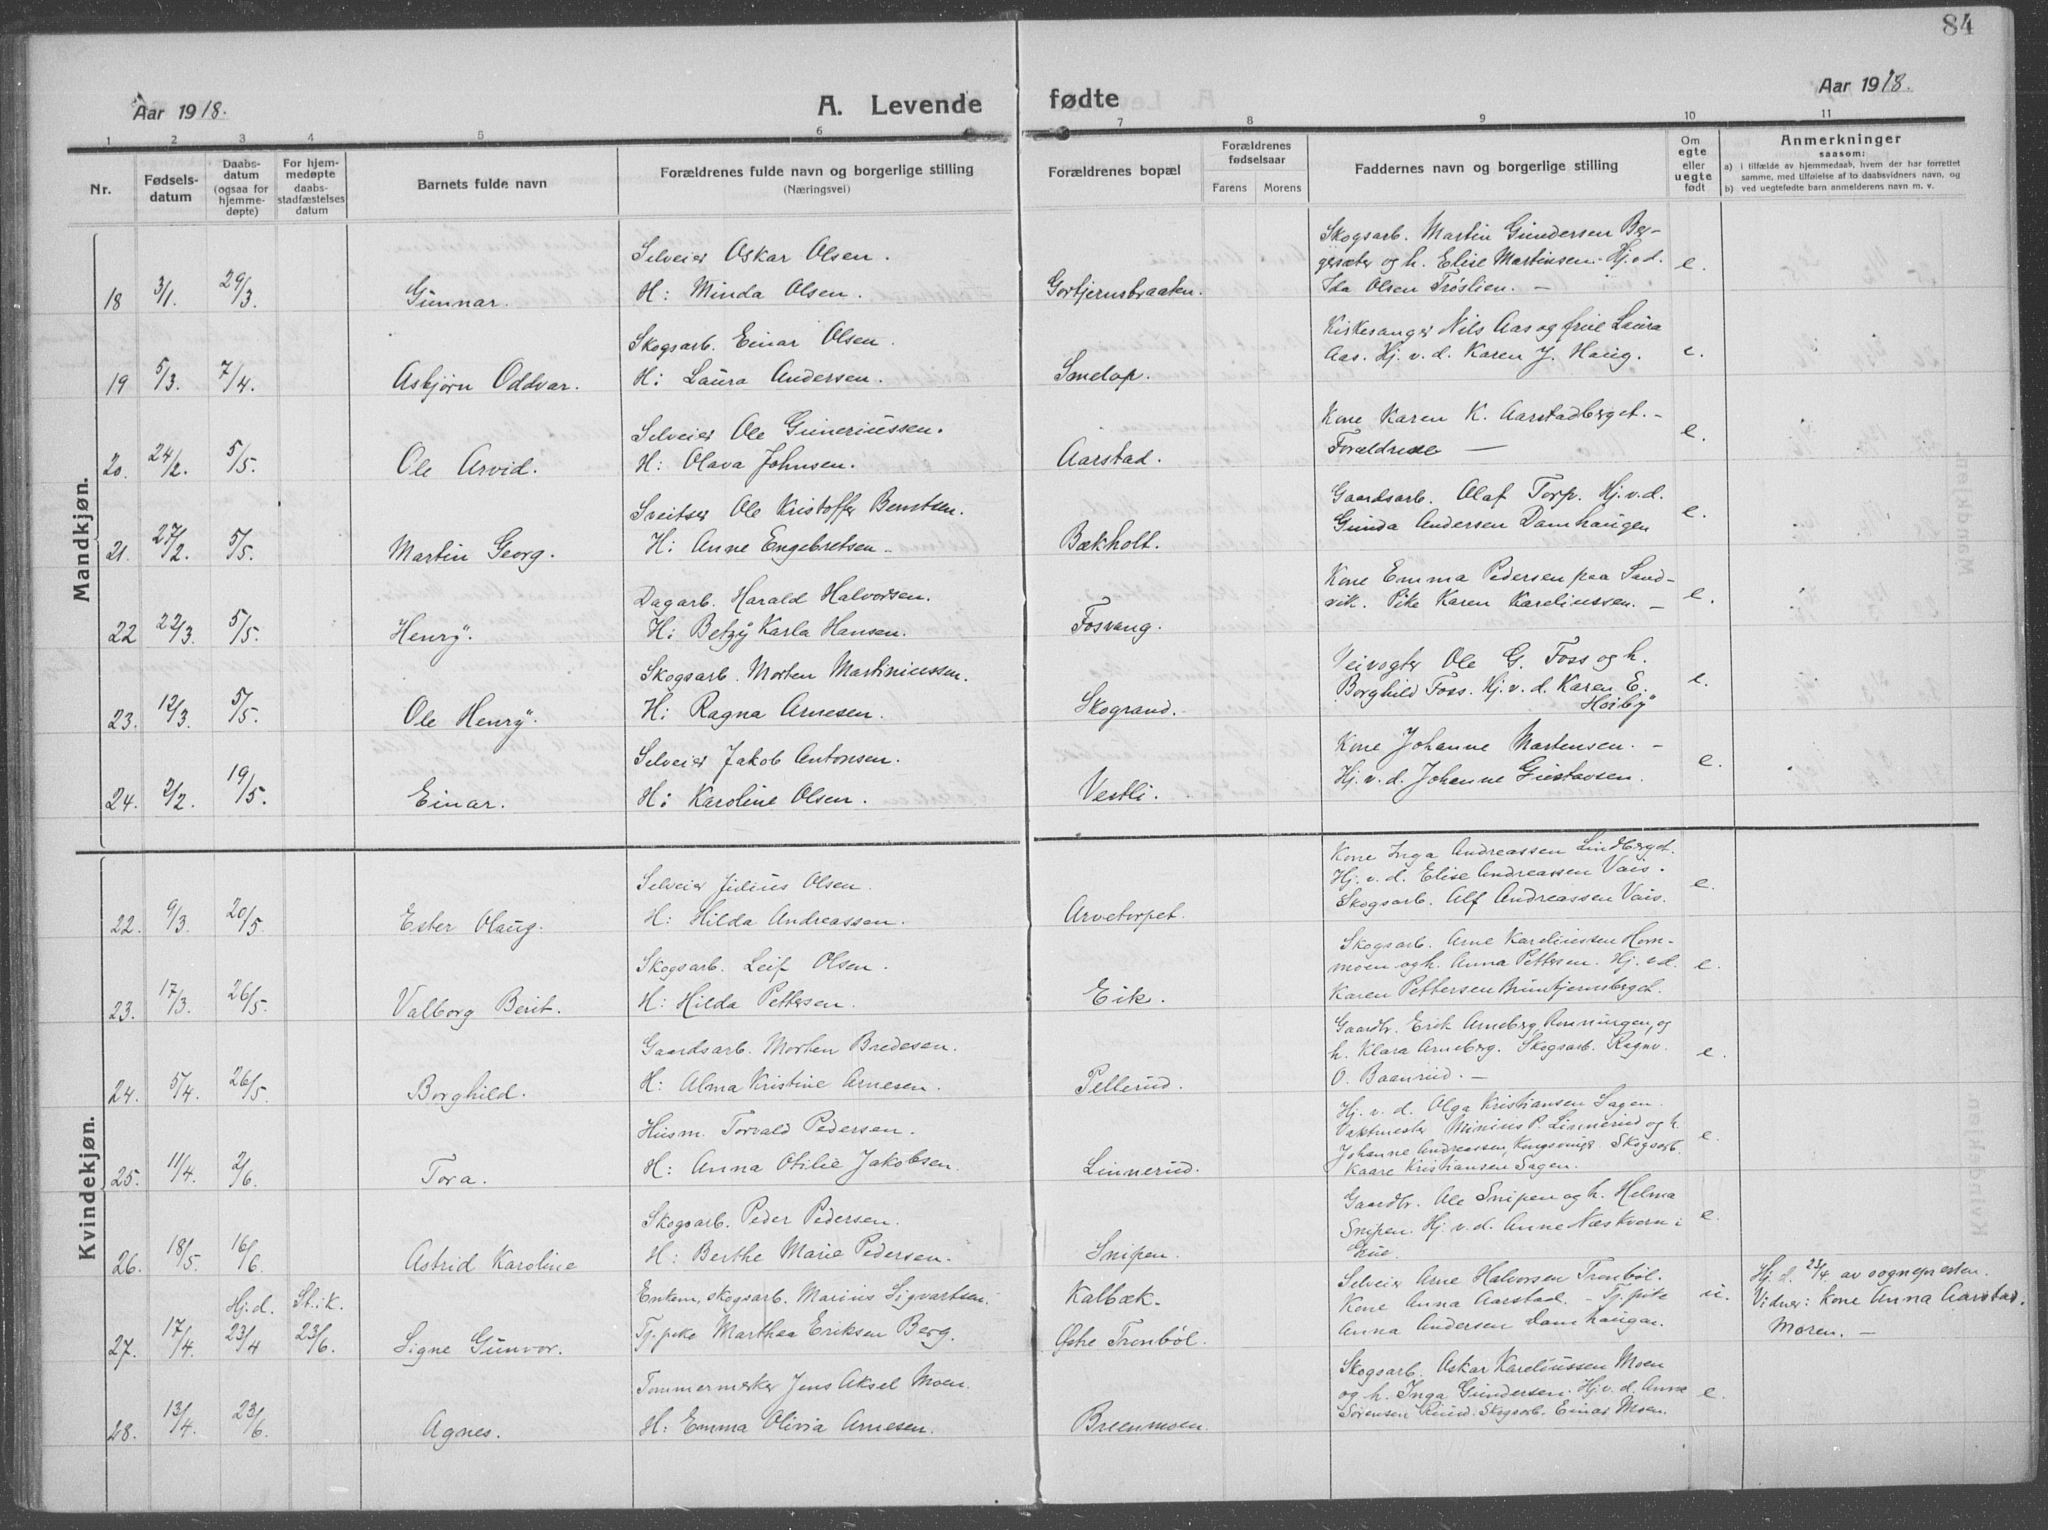 84
Aar 1918.
A. Levende
fødte
Aar 1918.
1 2 3 4 5 6 7 8 9 10 11
Nr.
Fødsels-
datum
Daabs-
datum
(ogsaa for
hjemme-
døpte)
For hjem-
medøpte
daabs-
stadfæstelses
datum
Barnets fulde navn
Forældrenes fulde navn og borgerlige stilling
(Næringsvei)
Forældrenes bopæl
Forældrenes
fødselsaar
Farens Morens
Faddernes navn og borgerlige stilling
Om
egte
eller
uegte
født
Anmerkninger
saasom:
a) i tilfælde av hjemmedaab, hvem der har forrettet
samme, med tilføielse af to daabsvidners navn, og
b) ved uegtefødte barn anmelderens navn m. v.
Mandkjøn.
18 3/1. 29/3. Gunnar.
Selveier Oskar Olsen.
H: Minda Olsen.
Gortjernsbraaten.
Skogsarb. Martin Gundersen Ber-
gersæter og h. Elise Martinsen. Hj.v.d.
Ida Olsen Trøslien. —
e.
19 5/3. 7/4. Asbjørn Oddvar.
Skogsarb. Einar Olsen.
H: Laura Andersen.
Smelop.
Kirkesanger Nils Aas og frue Laura
Aas. Hj. v. d. Karen J. Haug.
e.
20. 24/2. 5/5. Ole Arvid.
Selveier Ole Guneriussen.
H: Olava Johnsen.
Aarstad.
Kone Karen K. Aarstadberget. —
Forældrene —
e.
21. 27/2. 5/5. Martin Georg.
Sveitser Ole Kristoffer Berntsen.
H: Anne Engebretsen.
Bækholt.
Gaardsarb. Olaf Torp. Hj.v.d.
Gunda Andersen Damhaugen
e.
22 22/3. 5/5. Henry.
Dagarb. Harald Halvorsen.
H: Betzy Karla Hansen.
Fosvang.
Kone Emma Pedersen paa Sand-
vik. Pike Karen Kareliussen. —
e.
23. 12/3. 5/5. Ole Henry.
Skogsarb. Morten Martiniussen.
H: Ragna Arnesen.
Skogrand.
Veivogter Ole G. Foss og h.
Borghild Foss. Hj. v. d. Karen E.
Høiby
e.
24. 2/2. 19/5. Einar.
Selveier Jakob Antonsen.
H: Karoline Olsen.
Vestli.
Kone Johanne Martensen. —
Hj. v. d. Johanne Gustavsen.
e.
Kvindekjøn.
22. 9/3. 20/5. Ester Olaug.
Selveier Julius Olsen.
H: Hilda Andreassen.
Arvetorpet.
Kone Inga Andreassen Lindberget.
Hj. v. d. Elise Andreassen Vais.
Skogsarb. Alf Andreassen Vais.
e.
23. 17/3. 26/5. Valborg Berit.
Skogsarb. Leif Olsen.
H: Hilda Pettersen.
Eik.
Skogsarb. Arne Kareliussen Horn-
moen og h. Anna Pettersen. Hj. v.d.
Karen Pettersen Bruntjernsberget.
e.
24. 5/4. 26/5. Borghild.
Gaardsarb. Morten Bredesen.
H: Alma Kristine Arnesen.
Pellerud.
Gaardbr. Erik Arneberg, Rønningen, og
h. Klara Arneberg. Skogsarb. Ragnv.
O. Baanrud. —
e.
25. 11/4. 2/6. Tora.
Husm. Torvald Pedersen.
H: Anna Otilie Jakobsen.
Linnerud.
Hj. v. d. Olga Kristiansen Sagen.
Vaktmester Minius P. Linnerud og h.
Johanne Andreassen, Kongsvinger. Skogsarb.
Kaare Kristiansen Sagen.
e.
26. 18/5. 16/6. Astrid Karoline
Skogsarb. Peder Pedersen.
H: Berthe Marie Pedersen.
Snipen.
Gaardbr. Ole Snipen og h. Helma
Snipen. Hj. v. d. Anne Næskvern i
Grue.
e.
27. 17/4. Hj.d. 23/4 St.i.k. 23/6. Signe Gunvor.
Enkem., skogsarb. Marius Sigvartsen.
Tj. pike Marthea Eriksen Berg.
Kalbæk.
Østre Tronbøl.
Selveier Arne Halvorsen Tronbøl.
Kone Anna Aarstad. — Tj. pike
Anna Andersen Damhaugen.
u.
Hj. d. 23/4. av sognepresten.
Vidner: Kone Anna Aarstad.
Moren. —
28. 13/4. 23/6. Agnes.
Tømmermerker Jens Aksel Moen.
H: Emma Olivia Arnesen.
Breenmoen.
Skogsarb. Oskar Kareliussen Moen
og h. Inga Gundersen. Hj v. d. Anne
Sørensen Ruud. Skogsarb. Einar Moen.
e.